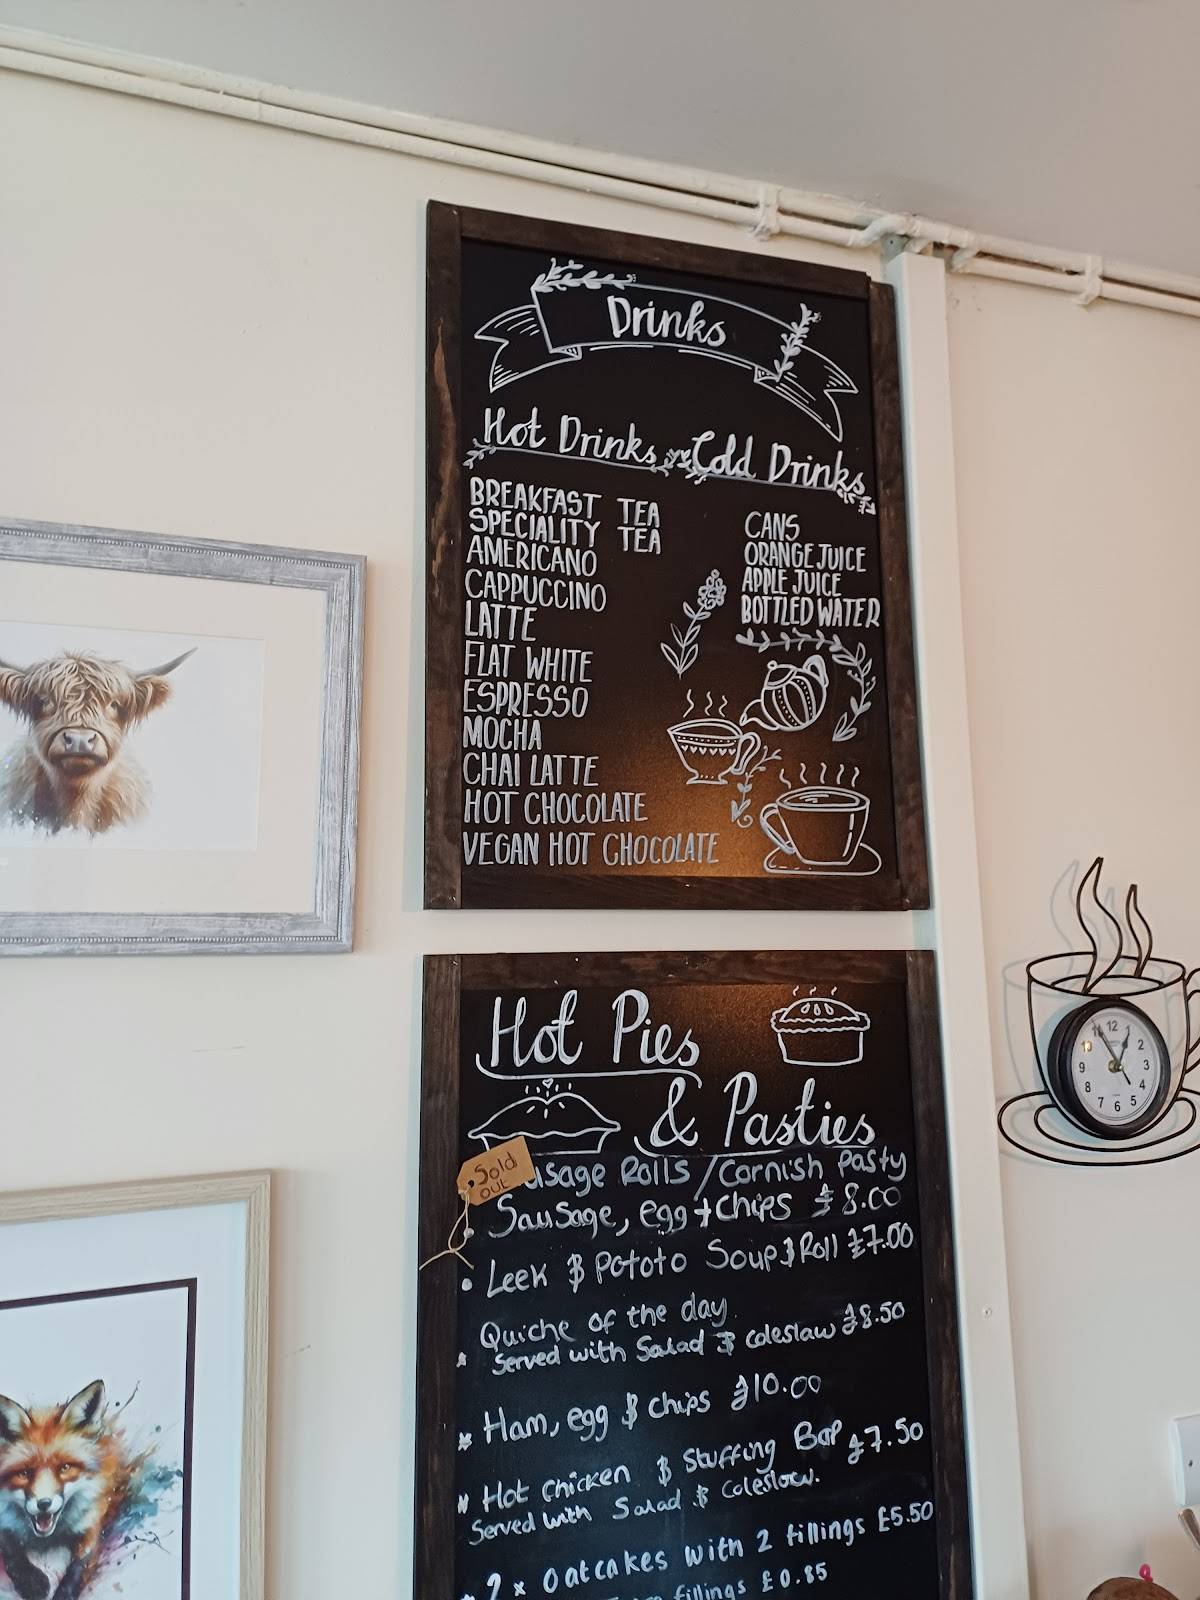 Drinks
Hot Drinks
BREAKFAST TEA
SPECIALITY TEA
AMERICANO
CAPPUCCINO
LATTE
FLAT WHITE
ESPRESSO
MOCHA
CHAI LATTE
HOT CHOCOLATE
VEGAN HOT CHOCOLATE
Cold Drinks
CANS
ORANGE JUICE
APPLE JUICE
BOTTLED WATER
Hot Pies
& Pasties
Sold
out
Rolls / Cornish Pasty
Sausage, egg + Chips £8.00
Leek & Potato Soup & Roll £7.00
Quiche of the day
Served with Salad & coleslaw £8.50
Ham, egg & chips £10.00
Hot chicken & Stuffing Bap £7.50
Served with Salad & coleslaw.
2 x Oatcakes with 2 fillings £5.50
fillings £0.85
12
1
2
3
4
5
6
7
8
9
10
11